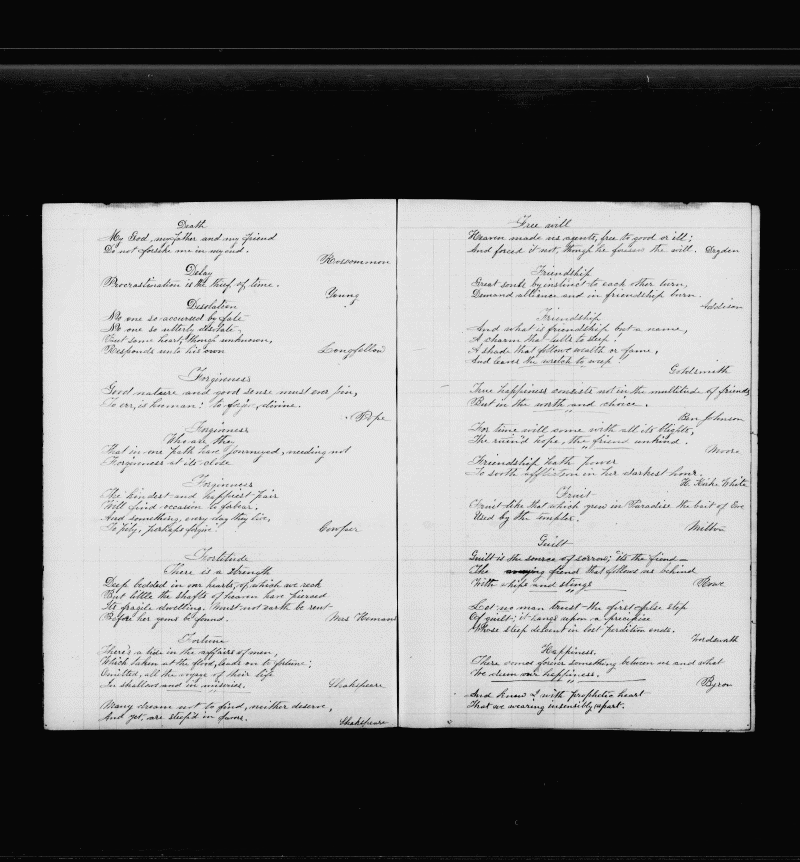 Death
My God, my father and my friend
Do not forsake me in my end.
Roscommon
Delay
Procrastination is the thief of time.
Young
Desolation
No one so accursed by fate
No one so utterly desolate
But some heart, though unknown,
Responds unto his own
Longfellow
Forgiveness
Good nature and good sense must ever join,
To err, is human: to forgive, divine.
Pope
Forgiveness
Who are the
That in one path have journeyed, needing not
Forgiveness at its close
Forgiveness
The kindest and happiest pair
Will find occasion to forbear.
And something, every day they live,
To pity, perhaps forgive.
Cowper
Fortitude
There is a strength
Deep bedded in our hearts, of which we reck
But little the shafts of heaven have pierced
Its fragile dwelling. Must not earth be rent
Before her gems be found.
Mrs Hemans
Fortune
There's a tide in the affairs of men,
Which taken at the flood, leads on to fortune;
Omitted, all the voyage of their life
In shallows and in miseries.
Shakspeare
Many dream not to find, neither deserve,
And yet, are steep'd in favors.
Shakspeare
Free will
Heaven made us agents, free to good or ill;
And forced it not, though he foresees the will. Dryden
Friendship
Great souls by instinct to each other turn,
Demand alliance and in friendship burn.
Addison
Friendship
And what is friendship but a name,
A charm that lulls to sleep!
A shade that follows wealth or fame,
And leaves the wretch to weep
Goldsmith
True happiness consists not in the multitude of friends
But in the worth and choice.
Ben Johnson
For time will come with all its blights,
The ruin'd hope, the friend unkind.
Moore
Friendship hath power
To sooth affliction in her darkest hour.
H. Kirke White
Fruit
Fruit like that which grew in Paradise the bait of Eve
Used by the tempter.
Milton
Guilt
Guilt is the source of sorrow; 'tis the fiend
The fiend that follows us behind
With whips and stings
Rowe
Let no man trust the first false step
Of guilt; it hangs upon a precipice
Whose steep descent in lost perdition ends.
Happiness.
There comes forever something between us and what
We deem our happiness.
Byron
And know I with prophetic heart
That we wearing insensibly apart.